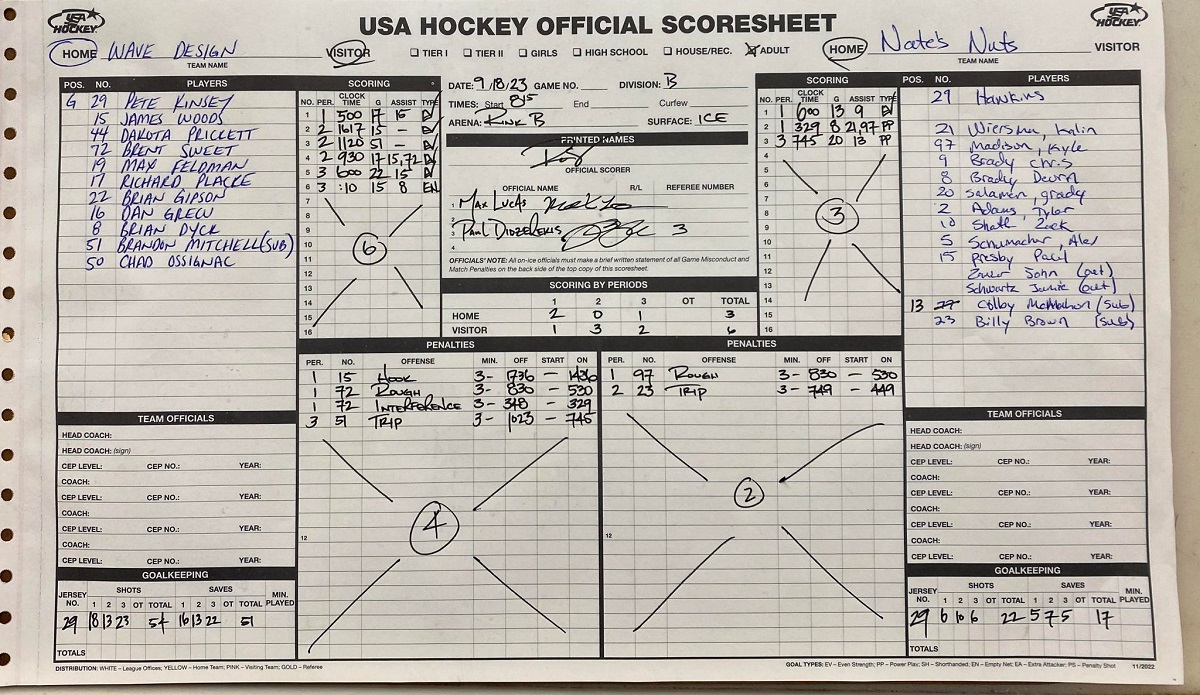 USA HOCKEY OFFICIAL SCORESHEET
USA HOCKEY
USA HOCKEY
HOME WAVE DESIGN VISITOR
TEAM NAME
☐ TIER I ☐ TIER II ☐ GIRLS ☐ HIGH SCHOOL ☐ HOUSE/REC. ☒ ADULT
HOME Nate's Nuts VISITOR
TEAM NAME
POS. NO. PLAYERS
G 29 PETE KINSEY
15 JAMES WOODS
44 DAKOTA PRICKETT
72 BRENT SWEET
19 MAX FELDMAN
17 RICHARD PLACKE
22 BRIAN GIPSON
16 DAN GRECU
8 BRIAN DYCK
51 BRANDON MITCHELL (SUB)
50 CHAD OSSIGNAC
SCORING
NO. PER. CLOCK TIME G ASSIST TYPE
1 1 500 17 16 EV
2 2 1617 15 – EV
3 2 1120 51 – EV
4 2 930 17 15,72 EV
5 3 600 22 15 EV
6 3 :10 15 8 EN
7
8
9
10
11
12
13
14
15
16
6
DATE: 9/18/23 GAME NO. DIVISION: B
TIMES: Start 815 End Curfew
ARENA: RINK B SURFACE: ICE
PRINTED NAMES
OFFICIAL SCORER
OFFICIAL NAME R/L REFEREE NUMBER
1 MAX LUCAS
2
3 PAUL 3
4
OFFICIALS' NOTE: All on-ice officials must make a brief written statement of all Game Misconduct and
Match Penalties on the back side of the top copy of this scoresheet.
SCORING BY PERIODS
1 2 3 OT TOTAL
HOME 2 0 1 3
VISITOR 1 3 2 6
SCORING
NO. PER. CLOCK TIME G ASSIST TYPE
1 1 600 13 9 EV
2 1 329 8 21,97 PP
3 3 745 20 13 PP
4
5
6
7
8
9
10
11
12
13
14
15
16
3
POS. NO. PLAYERS
29 Hawkins
21 Wiersma, Kalin
97 Madison, Kyle
9 Brady Chris
8 Brady Devin
20 Salaman, grady
2 Adams, Tyler
10 Zack
5 Schumacher, Alex
15 Presby Paul
John (out)
Schwartz Jamie (out)
13 77 Colby McMahon (sub)
23 Billy Brown (sub)
PENALTIES
PER. NO. OFFENSE MIN. OFF START ON
1 15 HOOK 3- 1736 – 1436
1 72 ROUGH 3- 830 – 530
1 72 INTERFERENCE 3- 348 – 329
3 51 TRIP 3- 1023 – 745
12
4
PENALTIES
PER. NO. OFFENSE MIN. OFF START ON
1 97 ROUGH 3- 830 – 530
2 23 TRIP 3- 749 – 449
12
2
TEAM OFFICIALS
HEAD COACH:
HEAD COACH: (sign)
CEP LEVEL: CEP NO.: YEAR:
COACH:
CEP LEVEL: CEP NO.: YEAR:
COACH:
CEP LEVEL: CEP NO.: YEAR:
COACH:
CEP LEVEL: CEP NO.: YEAR:
GOALKEEPING
JERSEY NO. SHOTS SAVES MIN. PLAYED
1 2 3 OT TOTAL 1 2 3 OT TOTAL
29 18 13 23 54 16 13 22 51
TOTALS
TEAM OFFICIALS
HEAD COACH:
HEAD COACH: (sign)
CEP LEVEL: CEP NO.: YEAR:
COACH:
CEP LEVEL: CEP NO.: YEAR:
COACH:
CEP LEVEL: CEP NO.: YEAR:
COACH:
CEP LEVEL: CEP NO.: YEAR:
GOALKEEPING
JERSEY NO. SHOTS SAVES MIN. PLAYED
1 2 3 OT TOTAL 1 2 3 OT TOTAL
29 6 10 6 22 5 7 5 17
TOTALS
DISTRIBUTION: WHITE – League Offices; YELLOW – Home Team; PINK – Visiting Team; GOLD – Referee
GOAL TYPES: EV – Even Strength; PP – Power Play; SH – Shorthanded; EN – Empty Net; EA – Extra Attacker; PS – Penalty Shot 11/2022